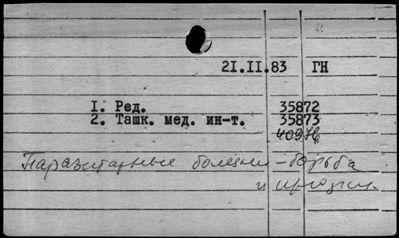 21.II.83 ГН
I. Ред. 35872
2. Ташк. мед. ин-т. 35873
Паразитарные болезни - борьба
и